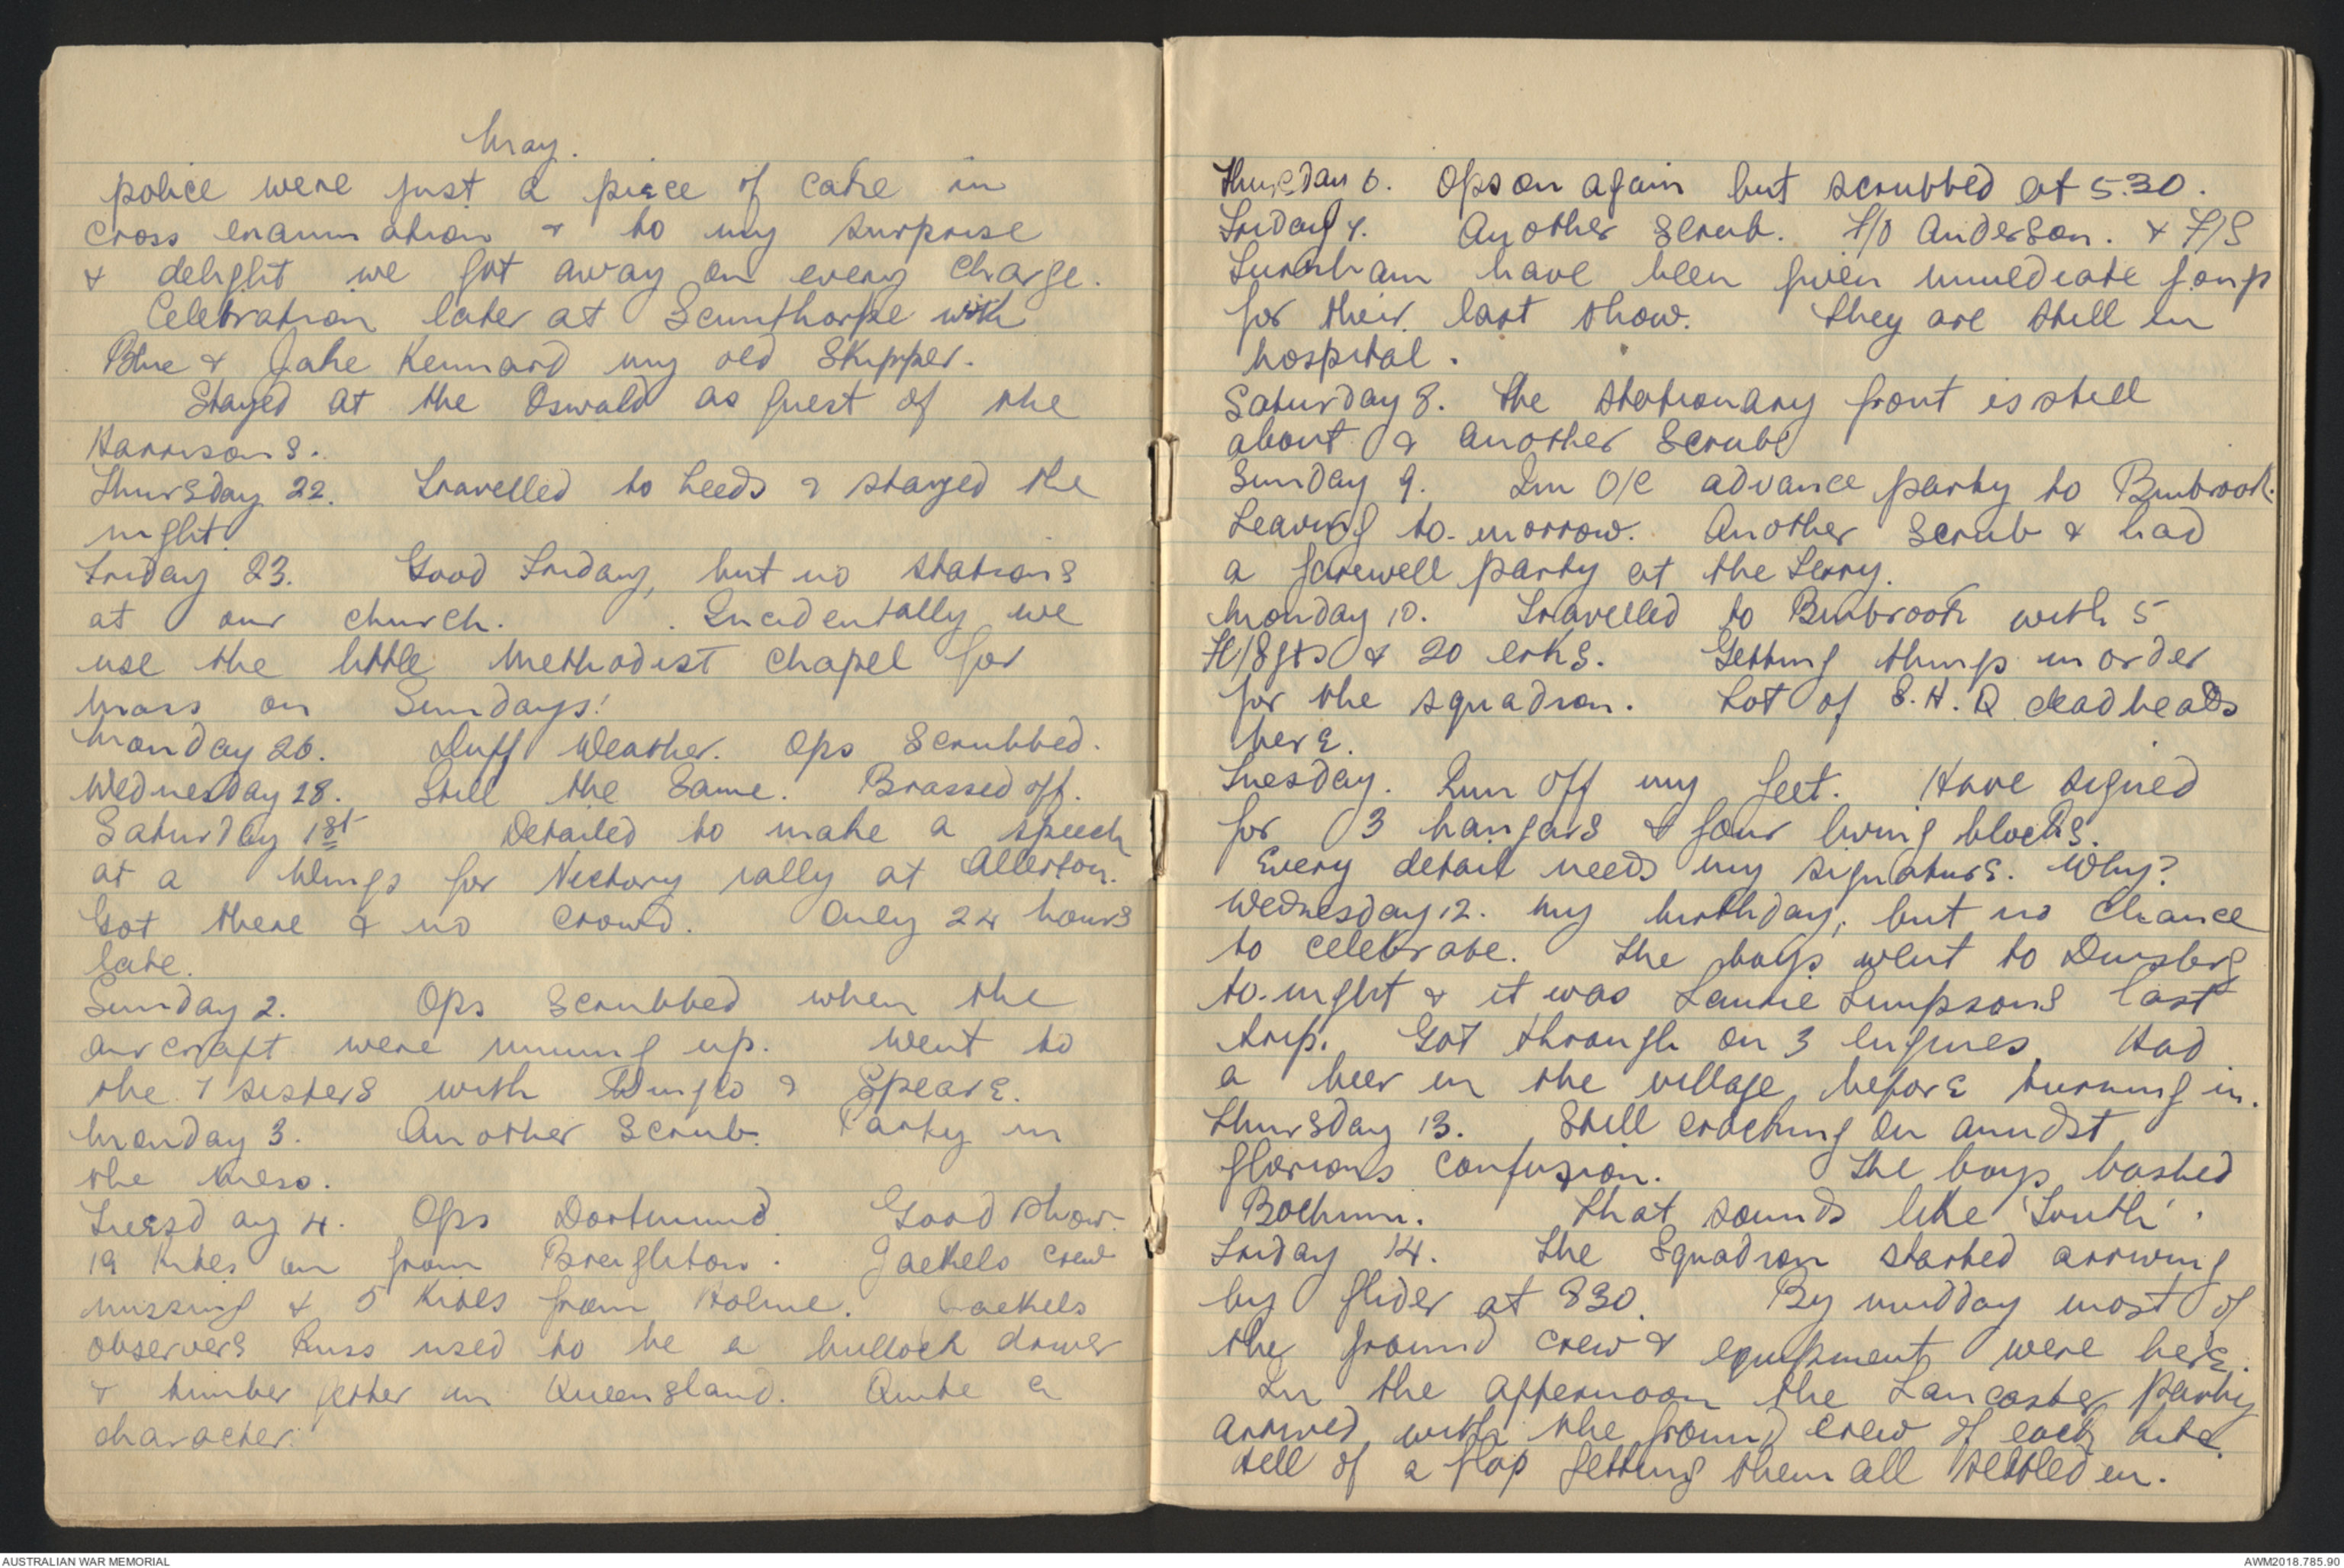 May.
police were just a piece of cake in
cross examination & to my surprise
& delight we got away on every charge.
Celebration later at Scunthorpe with
Blue & Jake Kennard my old Skipper.
Stayed at the Oswald as guest of the
Harrisons.
Thursday 22. Travelled to Leeds & stayed the
night.
Friday 23. Good Friday, but no stations
at our church. Incidentally we
use the little Methodist Chapel for
Mass on Sundays!
Monday 26. Duff Weather. Ops Scrubbed.
Wednesday 28. Still the Same. Brassed off.
Saturday 1st Detailed to make a speech
at a Wings for Victory rally at Allerton.
Got there & no crowd. Only 24 hours
late.
Sunday 2. Ops Scrubbed when the
aircraft were running up. Went to
the 7 sisters with Dingo & Speare.
Monday 3. Another Scrub. Party in
the Mess.
Tuesday 4. Ops Dortmund. Good show.
19 kites on from Breighton. Jaekels crew
missing & 5 kites from Holme. Jaekels
observer Russ used to be a bullock driver
& timber getter in Queensland. Quite a
character.
Thursday 6. Ops on again but scrubbed at 5.30.
Friday 7. Another Scrub. F/O Anderson. & F/S
have been given immediate gongs
for their last show. They are still in
hospital.
Saturday 8. The stationary front is still
about & another Scrub
Sunday 9. Im O/C advance party to Binbrook.
Leaving to-morrow. Another Scrub & had
a farewell party at the Ferry.
Monday 10. Travelled to Binbrook with 5
Fl/Sgts & 20 erks. Getting things in order
for the squadron. Lot of S.H.Q deadheads
here.
Tuesday. Run off my feet. Have signed
for 3 hangars & four living blocks.
Every detail needs my signature. Why?
Wednesday 12. My birthday, but no chance
to celebrate. The boys went to Duisberg
to-night & it was Laurie Simpsons last
trip. Got through on 3 engines. Had
a beer in the village before turning in.
Thursday 13. Still cracking on amidst
glorious confusion. The boys bashed
Bochum. That sounds like 'Truth'.
Friday 14. The Squadron started arriving
by glider at 830. By midday most of
the ground crew & equipment were here.
In the afternoon the Lancaster party
arrived with the ground crew of each kite.
Hell of a flap getting them all settled in.
AUSTRALIAN WAR MEMORIAL
AWM2018.785.90